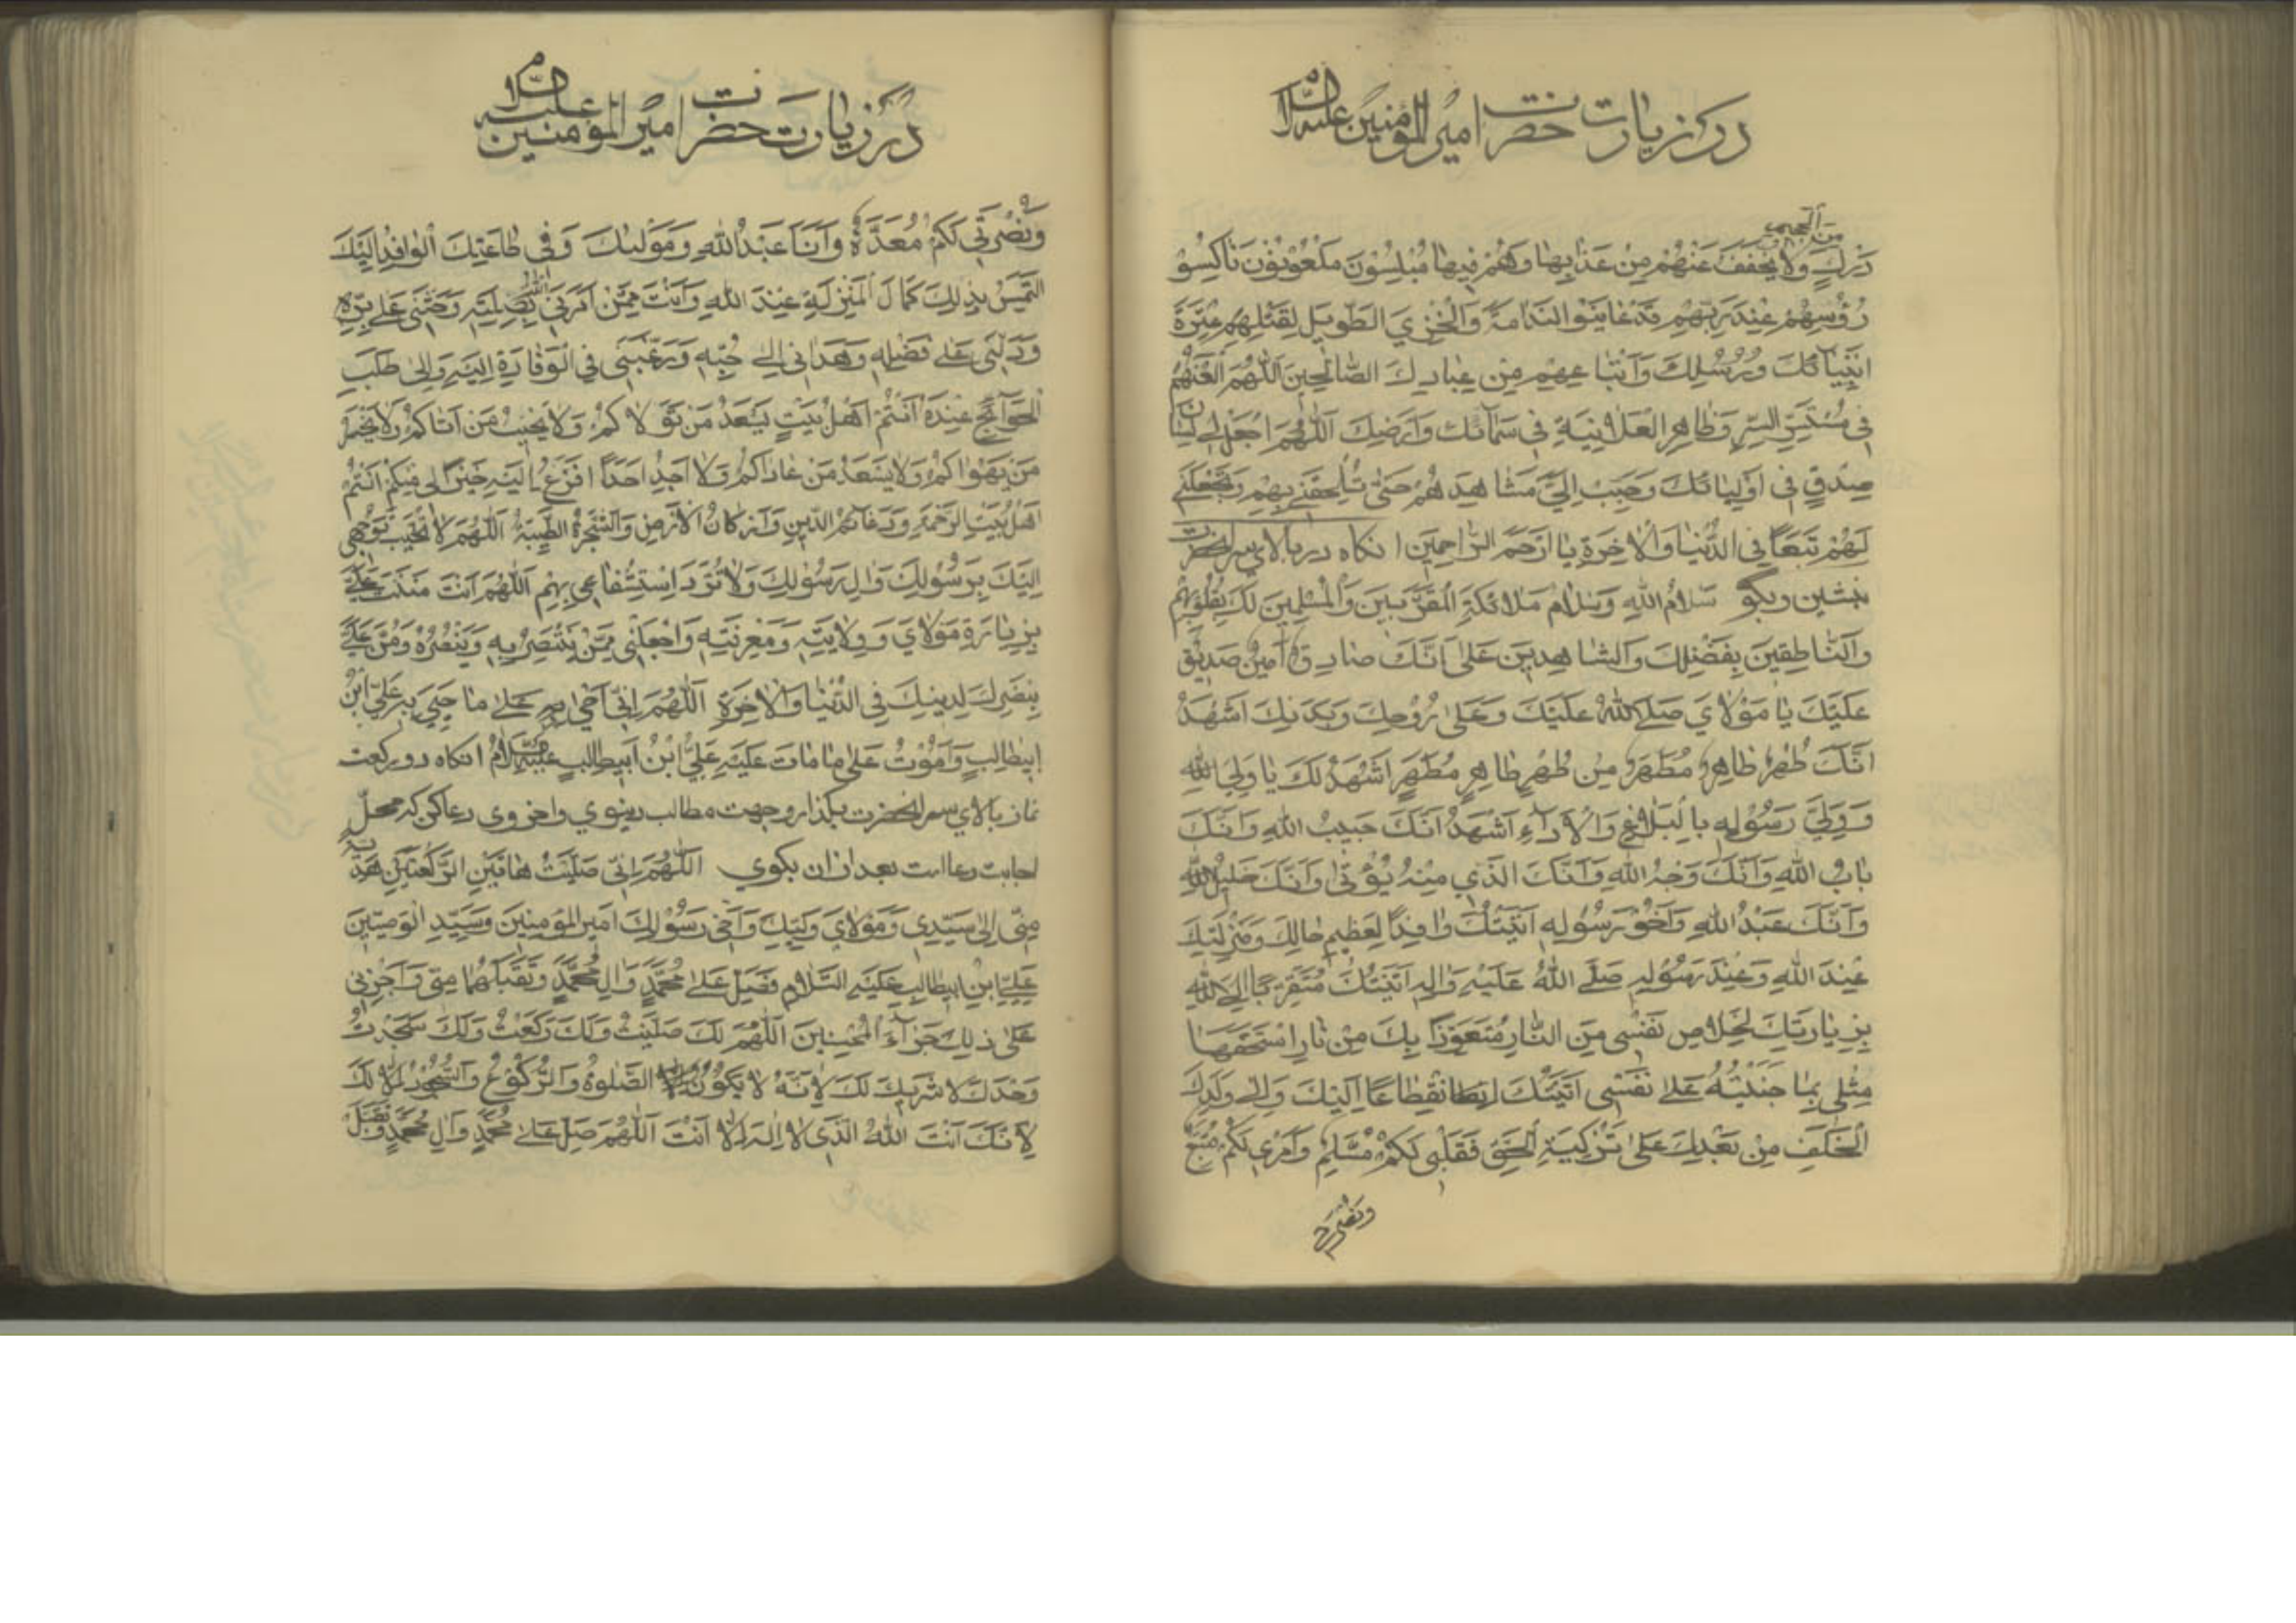 در زیارت حضرت امیر المؤمنین علیه السلام
من الجحیم
دَرَكٍ وَلا يُخَفَّفُ عَنْهُمْ مِنْ عَذابِها وَهُمْ فيها مُبْلِسُونَ مَلْعُونُونَ ناكِسُو
رُؤُسِهِمْ عِنْدَ رَبِّهِمْ قَدْ عايَنُوا النَّدامَةَ وَالْخِزْيَ الطَّويلَ لِقَتْلِهِمْ عِتْرَةَ
اَنْبِيائِكَ وَرُسُلِكَ وَاَتْباعِهِمْ مِنْ عِبادِكَ الصّالِحينَ اَللّهُمَّ الْعَنْهُمْ
فى مُسْتَسِرِّ السِّرِّ وَظاهِرِ الْعَلانِيَةِ فى سَمائِكَ وَاَرْضِكَ اَللّهُمَّ اجْعَلْ لى لِسانَ
صِدْقٍ فى اَوْلِيائِكَ وَحَبِّبْ اِلَيَّ مَشاهِدَهُمْ حَتّى تُلْحِقَنى بِهِمْ وَتَجْعَلَنى
لَهُمْ تَبَعًا فِى الدُّنْيا وَالْاخِرَةِ يا اَرْحَمَ الرّاحِمينَ انکاه در بالای سر انحضرت
بنشین وبکو سَلامُ اللهِ وَسَلامُ مَلائِكَتِهِ الْمُقَرَّبينَ وَالْمُسْلِمينَ لَكَ بِقُلُوبِهِمْ
وَالنّاطِقينَ بِفَضْلِكَ وَالشّاهِدينَ عَلى اَنَّكَ صادِقٌ اَمينٌ صِدّيقٌ
عَلَيْكَ يا مَوْلايَ صَلَّى اللهُ عَلَيْكَ وَعَلى رُوحِكَ وَبَدَنِكَ اَشْهَدُ
اَنَّكَ طُهْرٌ طاهِرٌ مُطَهَّرٌ مِنْ طُهْرٍ طاهِرٍ مُطَهَّرٍ اَشْهَدُ لَكَ يا وَلِيَّ اللهِ
وَوَلِيَّ رَسُولِهِ بِالْبَلاغِ وَالْاَداءِ اَشْهَدُ اَنَّكَ حَبيبُ اللهِ وَاَنَّكَ
بابُ اللهِ وَاَنَّكَ وَجْهُ اللهِ وَاَنَّكَ الَّذي مِنْهُ يُؤْتى وَاَنَّكَ خَليلُ اللهِ
وَاَنَّكَ عَبْدُ اللهِ وَاَخُو رَسُولِهِ اَتَيْتُكَ وافِدًا لِعَظيمِ حالِكَ وَمَنْزِلَتِكَ
عِنْدَ اللهِ وَعِنْدَ رَسُولِهِ صَلَّى اللهُ عَلَيْهِ وَالِهِ اَتَيْتُكَ مُتَقَرِّبًا اِلَى اللهِ
بِزِيارَتِكَ لِخَلاصِ نَفْسى مِنَ النّارِ مُتَعَوِّذًا بِكَ مِنْ نارٍ اسْتَحَقَّها
مِثْلى بِما جَنَيْتُهُ عَلى نَفْسى اَتَيْتُكَ انْقِطاعًا اِلَيْكَ وَاِلى وَلَدِكَ
الْخَلَفِ مِنْ بَعْدِكَ عَلى تَزْكِيَةِ الْحَقِّ فَقَلْبى لَكُمْ مُسَلِّمٌ وَاَمْري لَكُمْ مُتَّبِعٌ
ونصرتی
در زیارت حضرت امیر المؤمنین علیه السلام
وَنُصْرَتى لَكُمْ مُعَدَّةٌ وَاَنَا عَبْدُ اللهِ وَمَوْليكَ وَفى طاعَتِكَ الْوافِدُ اِلَيْكَ
اَلْتَمِسُ بِذلِكَ كَمالَ الْمَنْزِلَةِ عِنْدَ اللهِ وَاَنْتَ مِمَّنْ اَمَرَنِى اللهُ بِصِلَتِهِ وَحَثَّنى عَلى بِرِّهِ
وَدَلَّنى عَلى فَضْلِهِ وَهَدانى اِلى حُبِّهِ وَرَغَّبَنى فِى الْوِفادَةِ اِلَيْهِ وَاِلى طَلَبِ
الْحَوائِجِ عِنْدَهُ اَنْتُمْ اَهْلُ بَيْتٍ يَسْعَدُ مَنْ تَوَلّاكُمْ وَلا يَخيبُ مَنْ اَتاكُمْ وَلا يَخْسَرُ
مَنْ يَهْواكُمْ وَلا يَسْعَدُ مَنْ عاداكُمْ وَلا اَجِدُ اَحَدًا اَفْزَعُ اِلَيْهِ خَيْرًا لى مِنْكُمْ اَنْتُمْ
اَهْلُ بَيْتِ الرَّحْمَةِ وَدَعائِمُ الدّينِ وَاَرْكانُ الْاَرْضِ وَالشَّجَرَةُ الطَّيِّبَةُ اَللّهُمَّ لا تُخَيِّبْ تَوَجُّهى
اِلَيْكَ بِرَسُولِكَ وَالِ رَسُولِكَ وَلا تَرُدَّ اسْتِشْفاعى بِهِمْ اَللّهُمَّ اَنْتَ مَنَنْتَ عَلَيَّ
بِزِيارَةِ مَوْلايَ وَوِلايَتِهِ وَمَعْرِفَتِهِ وَاجْعَلْنى مِمَّنْ يَنْتَصِرُ بِهِ وَيَنْصُرُهُ وَمُنَّ عَلَيَّ
بِنَصْرِكَ لِدينِكَ فِى الدُّنْيا وَالْاخِرَةِ اَللّهُمَّ اِنّى اَحْيى عَلى ما حَيِيَ بِهِ عَلِيُّ ابْنُ
اَبيطالِبٍ وَاَمُوتُ عَلى ما ماتَ عَلَيْهِ عَلِيُّ ابْنُ اَبيطالِبٍ عَلَيْهِ السَّلامُ انکاه دو رکعت
نماز بالای سر انحضرت بکذار وجهت مطالب دنیوي واخروی دعا کن که محلّ
اجابت دعا است بعد ازان بکوي اَللّهُمَّ اِنّى صَلَّيْتُ هاتَيْنِ الرَّكْعَتَيْنِ هَدِيَّةً
مِنّى اِلى سَيِّدِى وَمَوْلايَ وَلِيِّكَ وَاَخى رَسُولِكَ اَميرِ الْمُؤْمِنينَ وَسَيِّدِ الْوَصِيّينَ
عَلِيِّ ابْنِ ابيطالِبٍ عَلَيْهِ السَّلامُ فَصَلِّ عَلى مُحَمَّدٍ وَالِ مُحَمَّدٍ وَتَقَبَّلْهُما مِنّى وَاَجْزِنى
عَلى ذلِكَ جَزاءَ الْمُحْسِنينَ اَللّهُمَّ لَكَ صَلَّيْتُ وَلَكَ رَكَعْتُ وَلَكَ سَجَدْتُ
وَحْدَكَ لا شَريكَ لَكَ لِاَنَّهُ لا يَكُونُ الصَّلوةُ وَالرُّكُوعُ وَالسُّجُودُ اِلّا لَكَ
لِاَنَّكَ اَنْتَ اللهُ الَّذى لا اِلهَ اِلّا اَنْتَ اَللّهُمَّ صَلِّ عَلى مُحَمَّدٍ وَالِ مُحَمَّدٍ وَتَقَبَّلْ